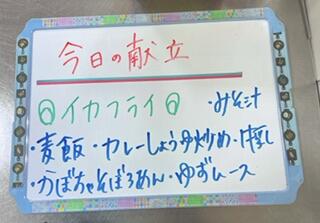 今日の献立
◎イカフライ◎ ・みそ汁
・麦飯・カレーしょうゆ炒め・
・かぼちゃそぼろあん・ゆずムース